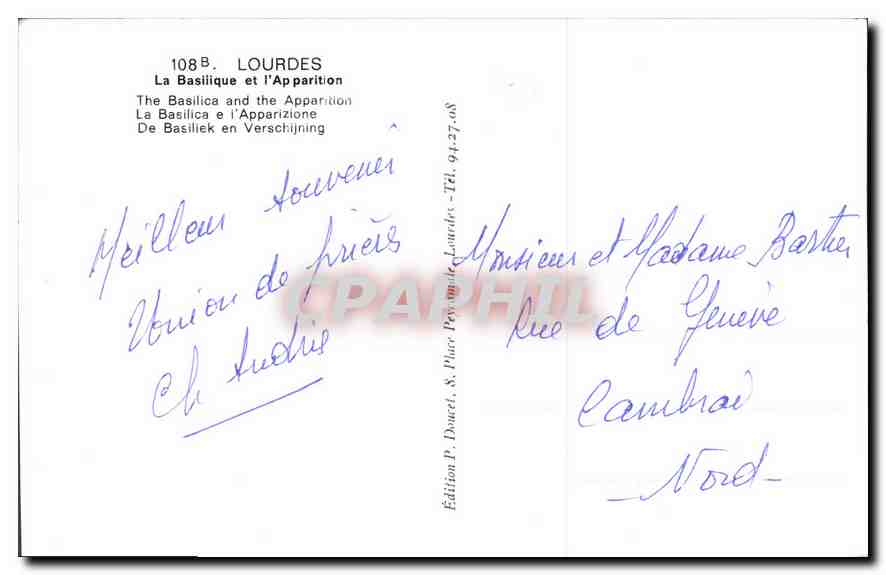 108B. LOURDES
La Basilique et l'Apparition
The Basilica and the Apparition
La Basilica e l'Apparizione
De Basiliek en Verschijning
Meilleur souvenir
Union de prières
Ch Andrie
Édition P. Doucet, 8, Place Peyramale, Lourdes - Tél. 94.27.08
Monsieur et Madame Barthe
rue de Genève
Cambrai
- Nord -
CPAPHIL